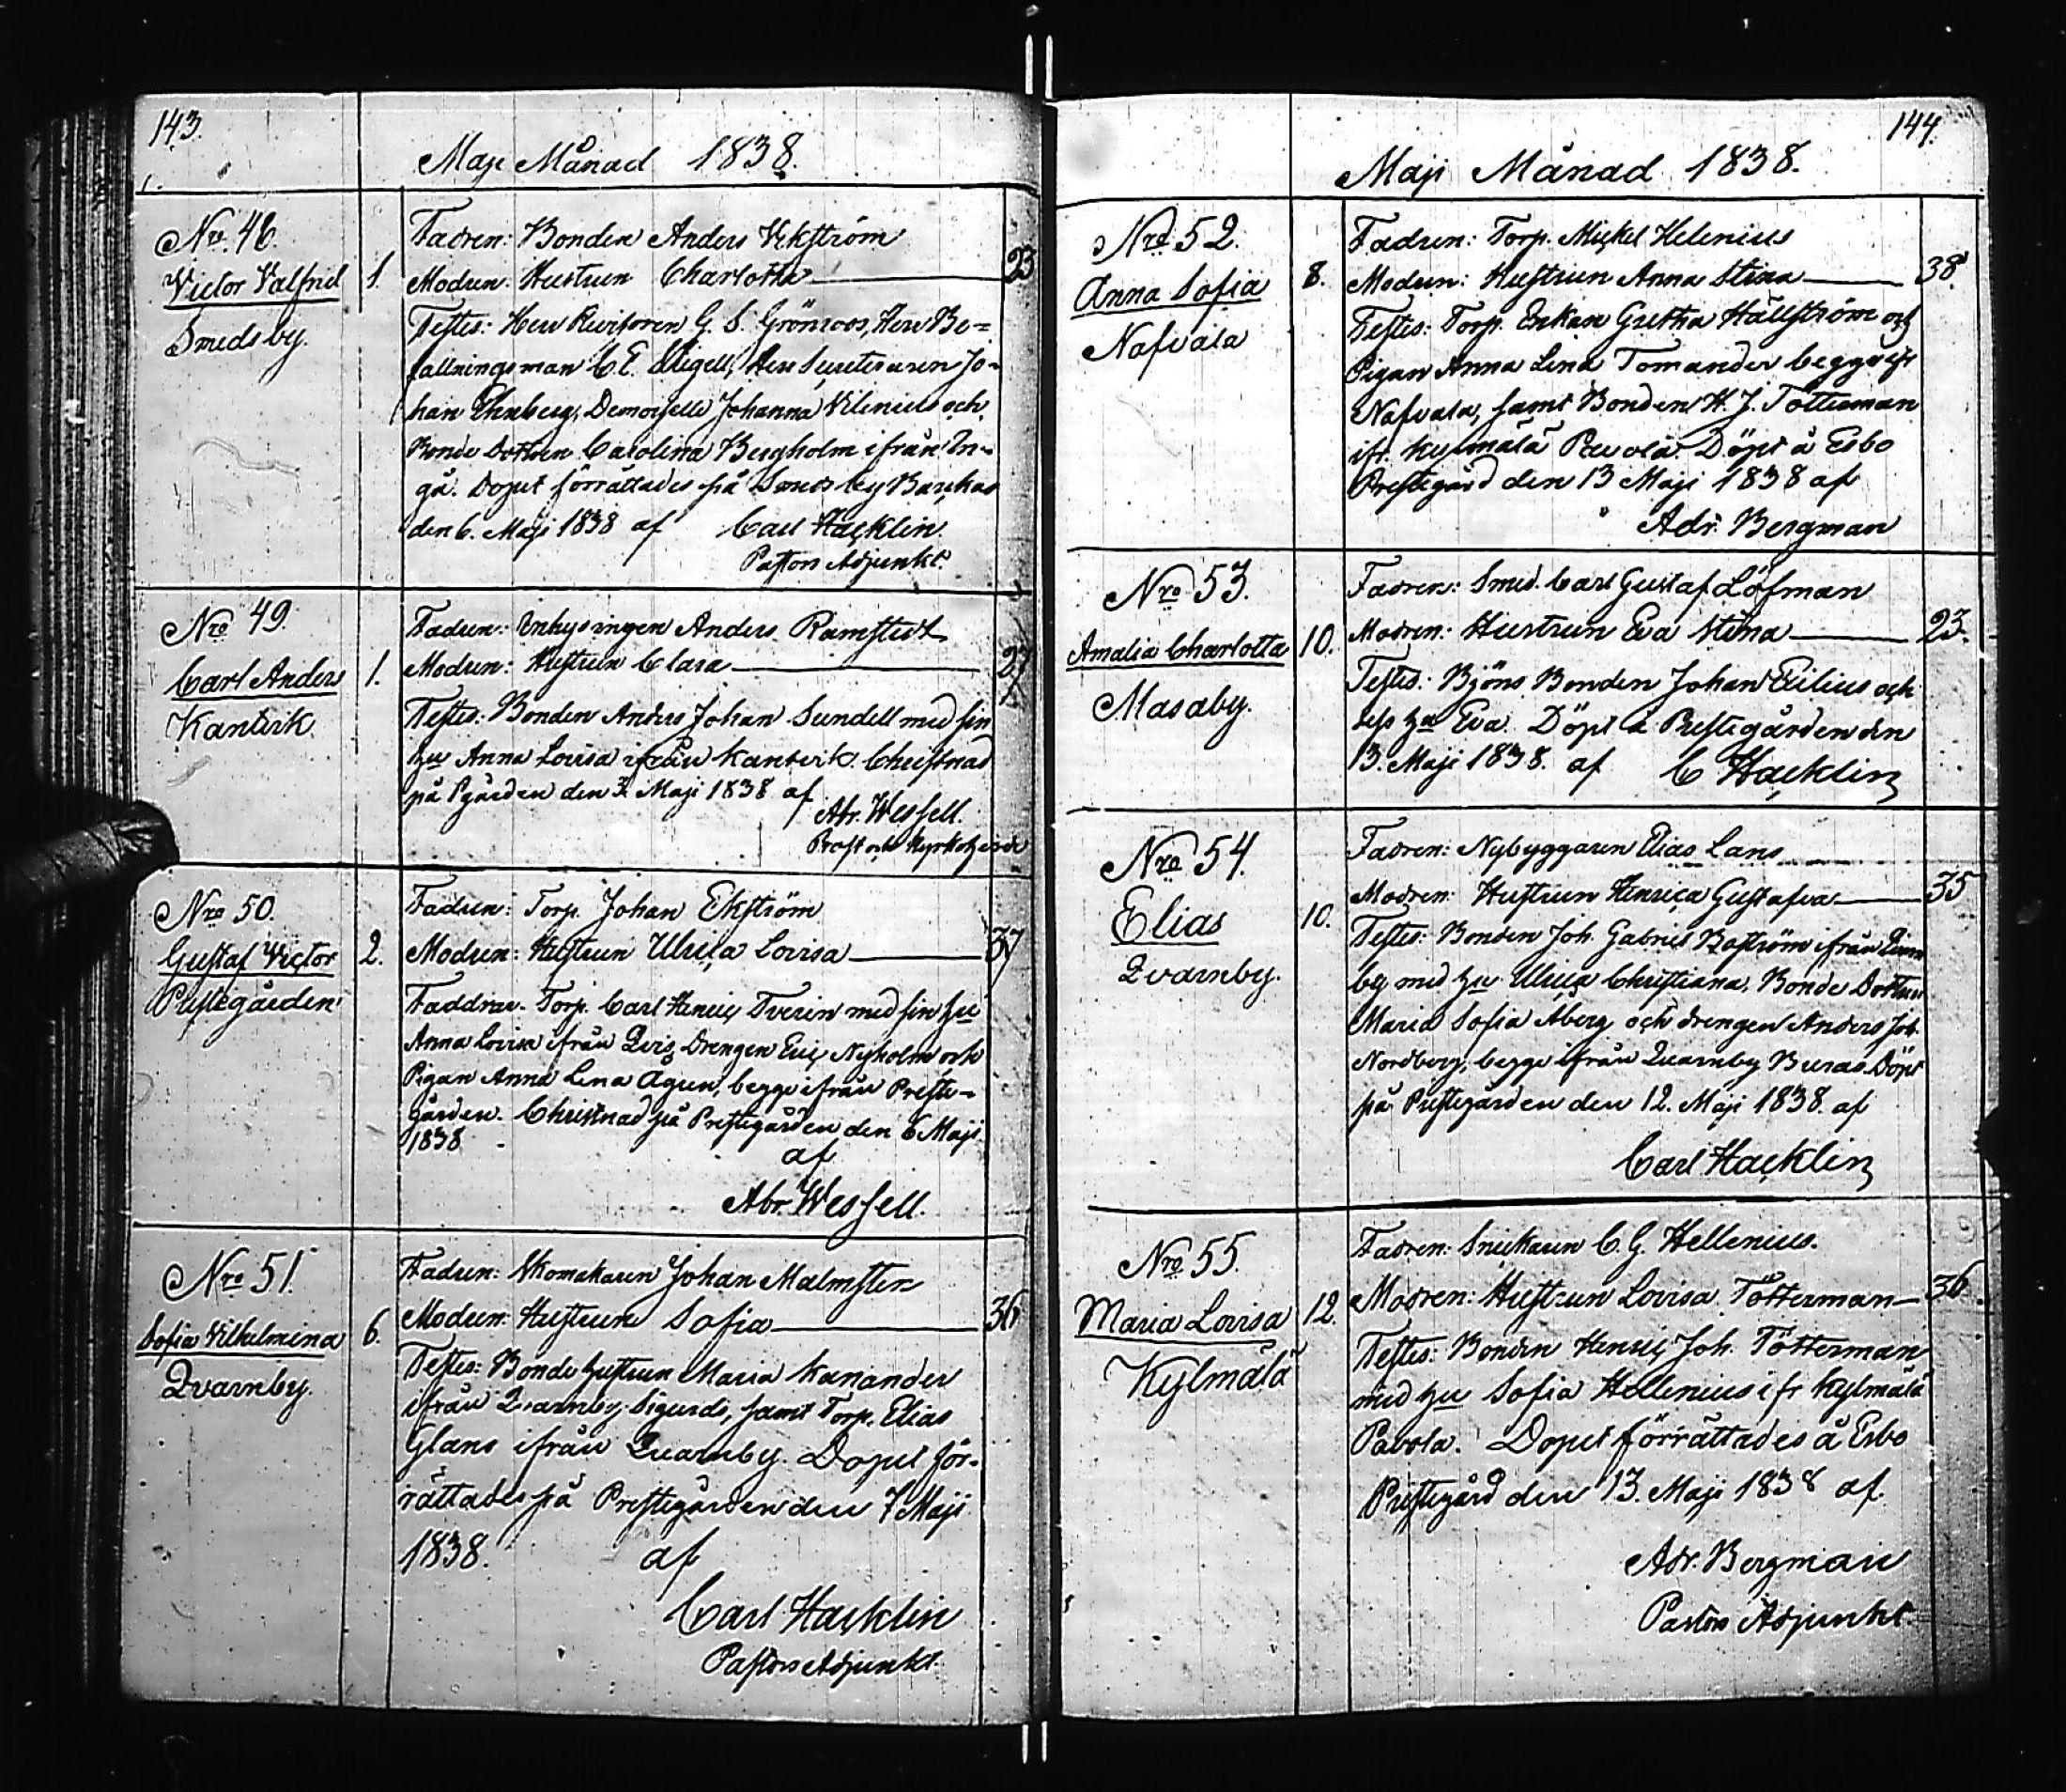 143.
Maji Månad 1838.
No. 48.
Victor Valfrid
Smedsby.
1.
Fadren: Bonden Anders Ekström
Modren: Hustrun Charlotta
23
Testes: Herr Revisoren G. S. Grönroos, Herr Be=
fallningsman C. E. Stigell, Herr Secreteraren Jo-
han Ehnberg, Demoiselle Johanna Vilenius och
Bonde Dottren Carolina Bergholm ifrån In-
gå. Dopet förrättades på Smedsby Backas
den 6. Maji 1838 af Carl Hacklin
Pastors Adjunkt.
Nro 49.
Carl Anders
Kantvik
1.
Fadren: Inhysingen Anders Ramstedt
Modren: Hustrun Clara
27
Testes: Bonden Anders Johan Sundell med sin
hu Anna Lovisa ifrån Kantvik. Christnad
på Pgården den 3 Maji 1838 af
Abr. Wessell.
Prost och Kyrkoherde
Nro 50.
Gustaf Victor
Prestegården
2.
Fadren: Torp. Johan Ekström
Modren: Hustrun Ulrica Lovisa
37
Faddrar. Torp. Carl Henric Tverin med sin hu
Anna Lovisa ifrån Qvis, Drengen Eric Nyholm och
Pigan Anna Lena Agren, begge ifrån Preste-
gården. Christnad på Prestegården den 6 Maji
1838
af
Abr. Wessell.
Nro 51.
Sofia Vilhelmina
Qvarnby.
6.
Fadren: Skomakaren Johan Malmsten
Modren: Hustrun Sofia
36
Testes: Bonde hustrun Maria Kanander
ifrån Qvarnby Sigurds, samt Torp. Elias
Glans ifrån Quarnby. Dopet för-
rättades på Prestegården den 7 Maji
1838. af
Carl Hacklin
Pastors Adjunkt.
144.
Maji Månad 1838.
Nro 52.
Anna Sofia
Nafvala
8.
Fadren: Torp. Mickel Helenius
Modren: Hustrun Anna Stina
38.
Testes: Torp. Enkan Gretha Hällström och
Pigan Anna Lena Tomander begge ifr
Nafvala, samt Bonden H. J. Tötterman
ifr. Kylmälä Pavola. Döpt å Esbo
Prestegård den 13 Maji 1838 af
Adr. Bergman
Nro 53.
Amalia Charlotta
Masaby.
10.
Fadren: Smed. Carl Gustaf Löfman
Modren: Hustrun Eva Stina
23.
Testes: Björns Bonden Johan Eilius och
dess hu Eva. Döpt å Prestegården den
13. Maji 1838. af C Hacklin
Nro 54.
Elias
Qvarnby.
10.
Fadren: Nybyggaren Elias Lans
Modren: Hustrun Henrica Gustafva
35
Testes: Bonden Joh. Gabriel Boström ifrån
by med hu Ulrica Christiana, Bonde Dottren
Maria Sofia Åberg och drengen Anders Joh.
Nordberg, begge ifrån Quarnby Buras. Döpt
på Prestegården den 12. Maji 1838. af
Carl Hacklin
Nro 55.
Maria Lovisa
Kylmälä
12.
Fadren: Snickaren C. G. Hellenius.
Modren: Hustrun Lovisa Tötterman
36.
Testes: Bonden Henric Joh. Tötterman
med hu Sofia Hellenius ifr Kylmälä
Pavola. Dopet förrättades å Esbo
Prestegård den 13. Maji 1838 af.
Adr. Bergman
Pastors Adjunkt.